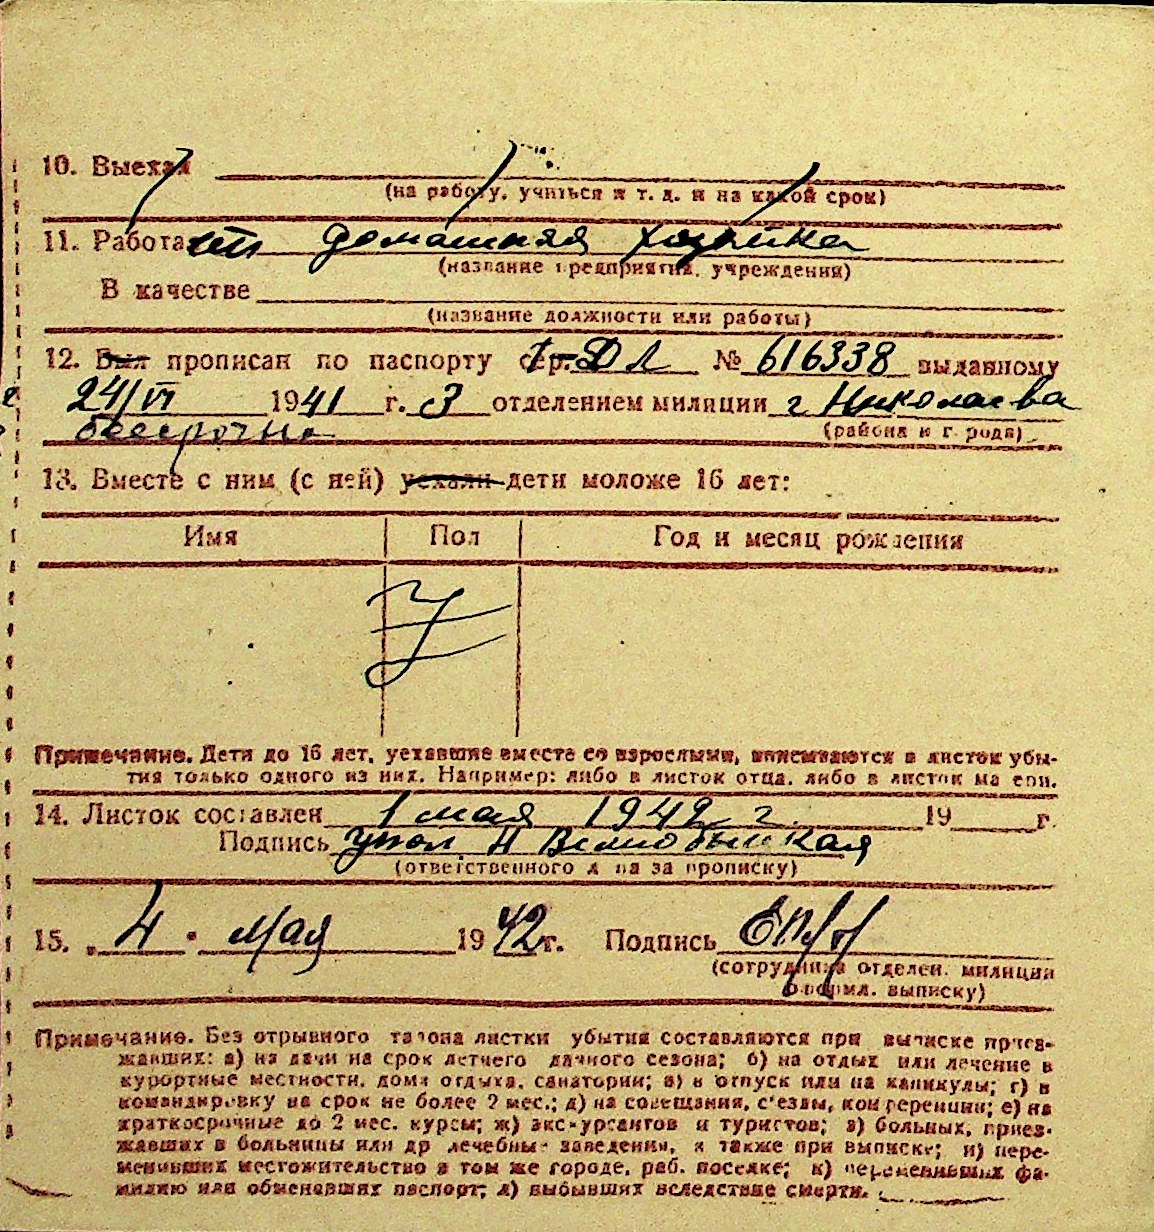 10. Выехал
(на работу, учиться и т. д. и на какой срок)
11. Работает домашняя хозяйка
(название предприятия, учреждения)
В качестве
(название должности или работы)
12. Был прописан по паспорту сер. ДЛ № 616338 выданному
24/VI 1941 г. 3 отделением милиции г Николаева
бессрочно (района и города)
13. Вместе с ним (с ней) уехали дети моложе 16 лет:
Имя Пол Год и месяц рождения
Примечание. Дети до 16 лет, уехавшие вместе со взрослыми, вписываются в листок убы-
тия только одного из них. Например: либо в листок отца, либо в листок матери.
14. Листок составлен 1 мая 1942 г. 19 г.
Подпись упол. Н
(ответственного лица за прописку)
15. „4" мая 1942 г. Подпись
(сотрудника отделен. милиции
оформл. выписку)
Примечание. Без отрывного талона листки убытия составляются при выписке приез-
жавших: а) на дачи на срок летнего дачного сезона; б) на отдых или лечение в
курортные местности, дома отдыха, санатории; в) в отпуск или на каникулы; г) в
командировку на срок не более 2 мес.; д) на совещания, с'езды, конференции; е) на
краткосрочные до 2 мес. курсы; ж) экскурсантов и туристов; з) больных, приез-
жавших в больницы или др лечебные заведения, а также при выписке; и) пере-
менивших местожительство в том же городе, раб. поселке; к) переменивших фа-
милию или обменявших паспорт; л) выбывших вследствие смерти.